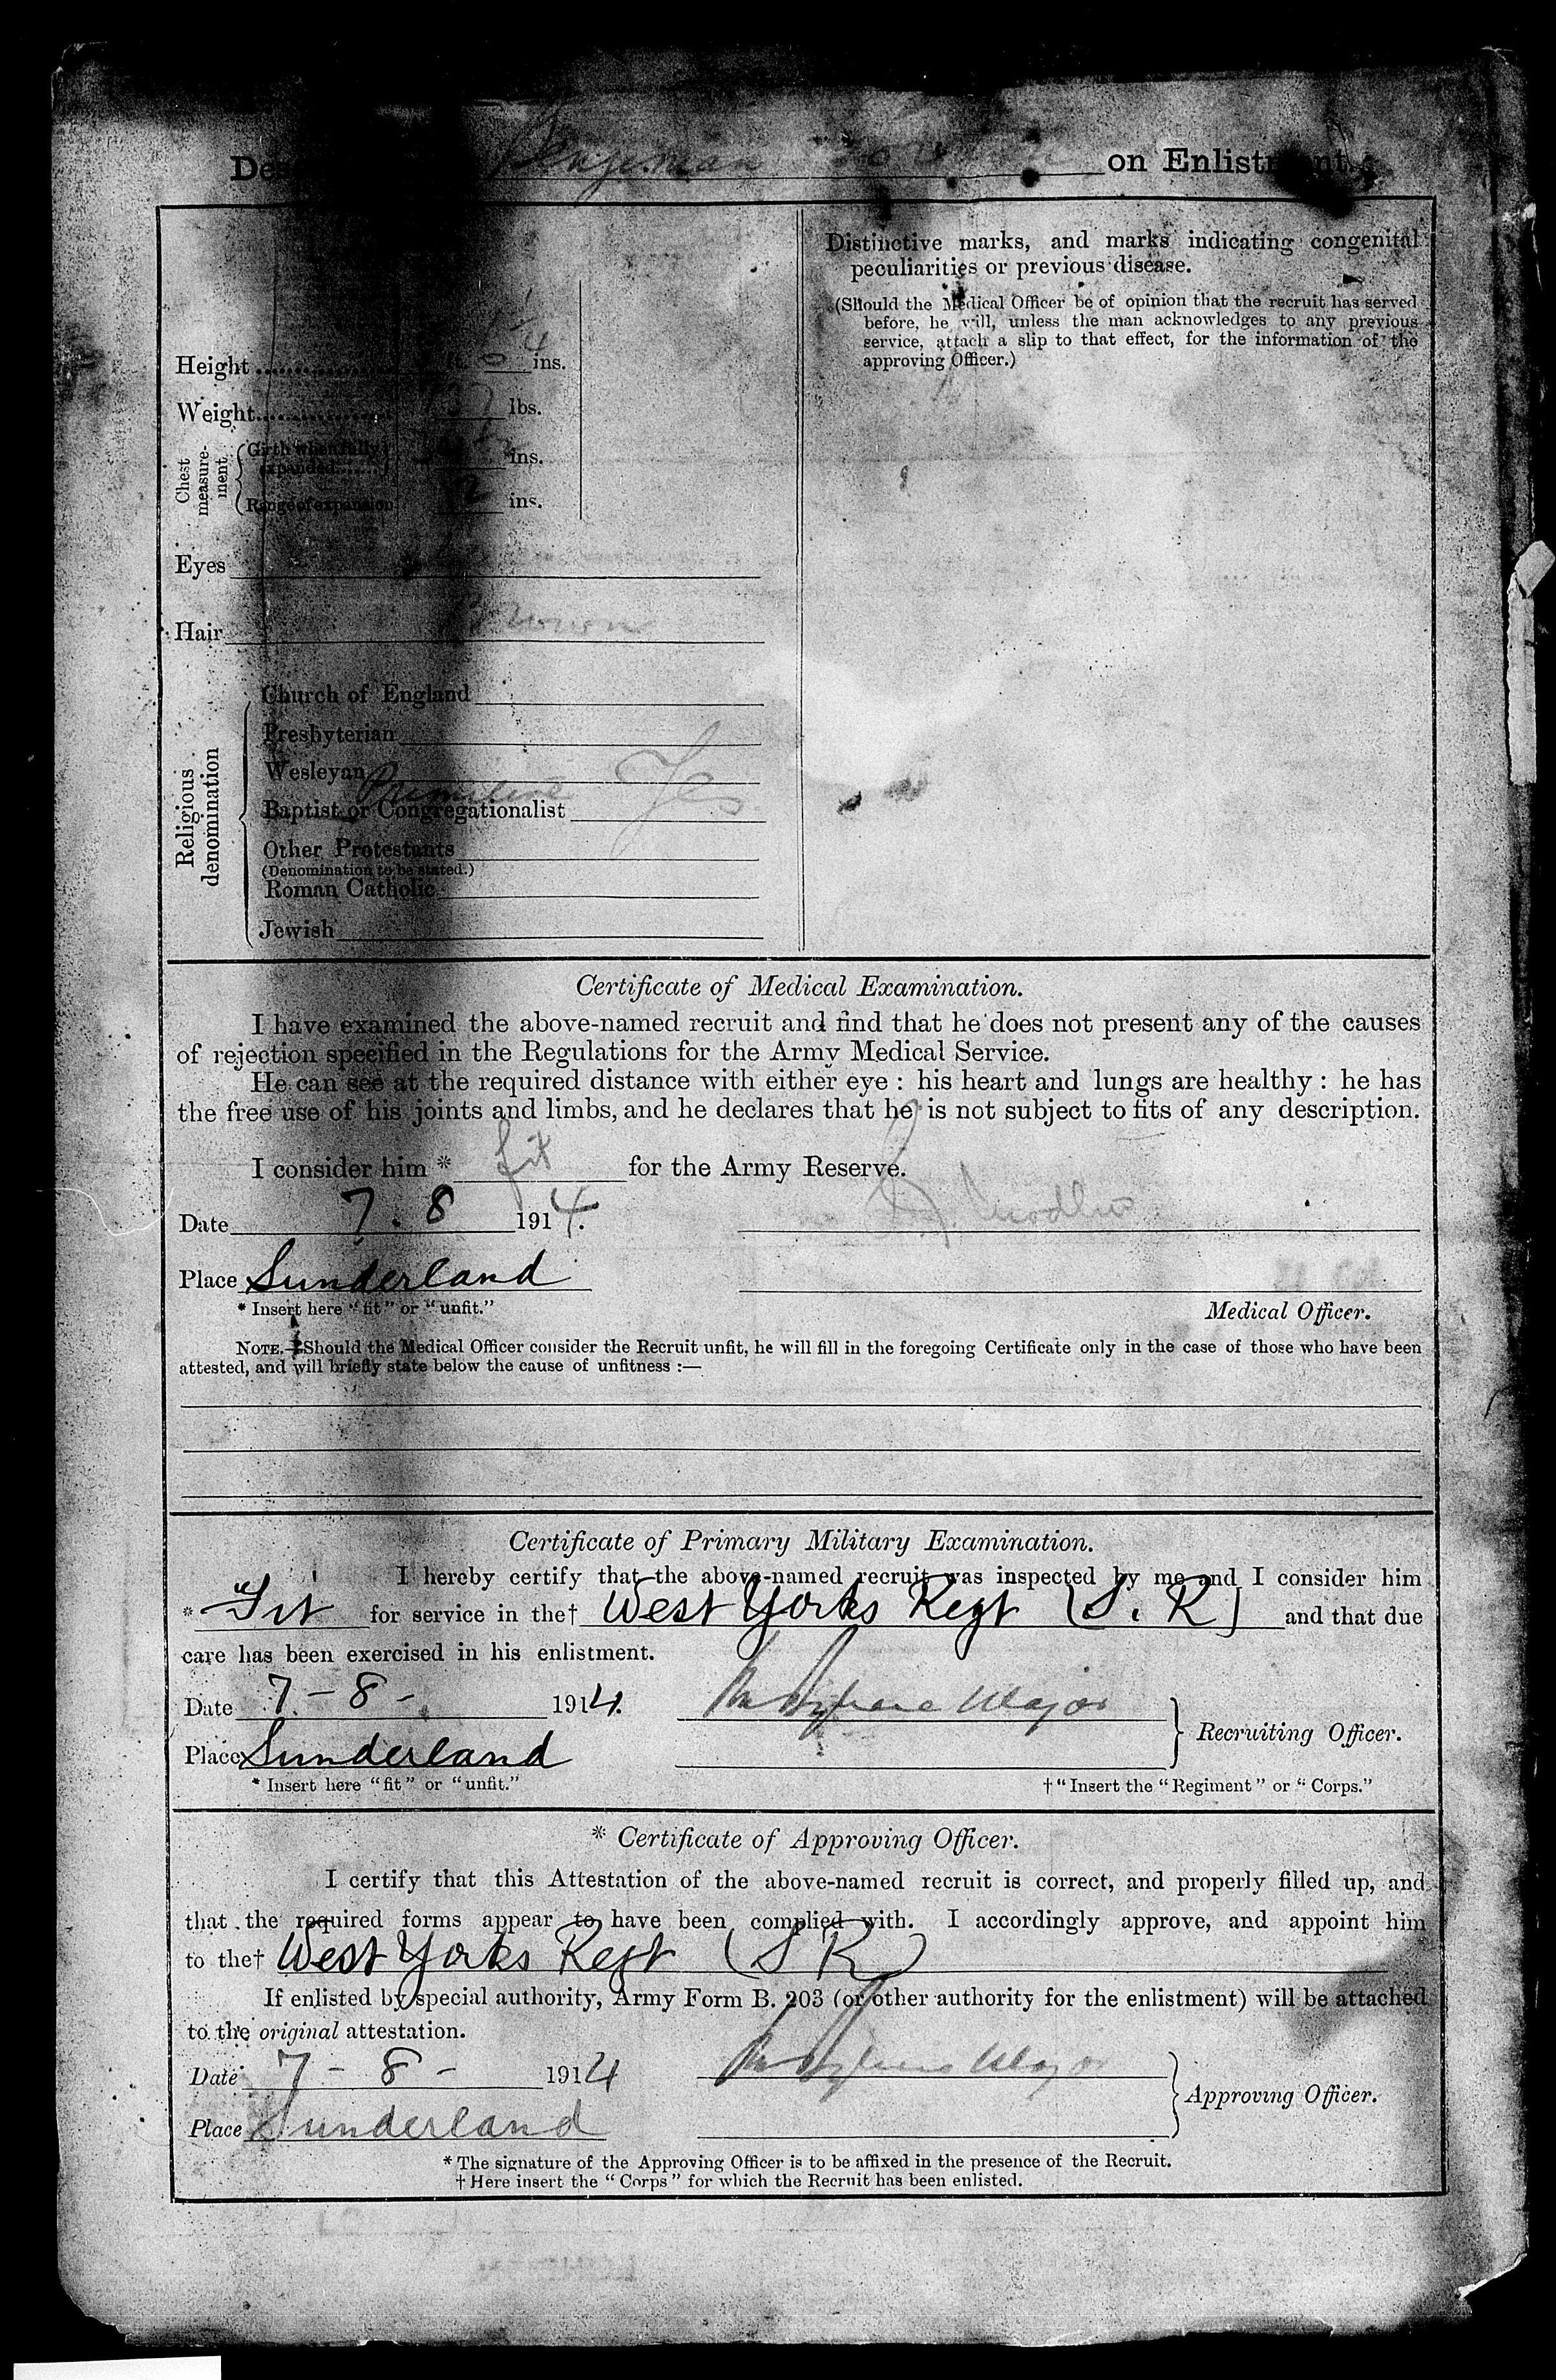 Benjeman on Enlistment.
Distinctive marks, and marks indicating congenital
peculiarities or previous disease.
(Should the Medical Officer be of opinion that the recruit has served
before, he will, unless the man acknowledges to any previous
service, attach a slip to that effect, for the information of the
approving Officer.)
Height ft. ins.
Weight lbs.
Chest measure-ment. Girth when fully expanded ins.
Range of expansion 2 ins.
Eyes
Hair Brown
Religious denomination
Church of England
Presbyterian
Wesleyan
Primitive Yes
Baptist or Congregationalist
Other Protestants
(Denomination to be stated.)
Roman Catholic
Jewish
Certificate of Medical Examination.
I have examined the above-named recruit and find that he does not present any of the causes
of rejection specified in the Regulations for the Army Medical Service.
He can see at the required distance with either eye : his heart and lungs are healthy : he has
the free use of his joints and limbs, and he declares that he is not subject to fits of any description.
I consider him * fit for the Army Reserve.
Date 7. 8 1914.
Place Sunderland
* Insert here "fit" or "unfit."
Medical Officer.
NOTE.—Should the Medical Officer consider the Recruit unfit, he will fill in the foregoing Certificate only in the case of those who have been
attested, and will briefly state below the cause of unfitness :—
Certificate of Primary Military Examination.
I hereby certify that the above-named recruit was inspected by me and I consider him
* Fit for service in the† West Yorks Regt (S. R) and that due
care has been exercised in his enlistment.
Date 7 - 8 - 1914. Major
Recruiting Officer.
Place Sunderland
* Insert here "fit" or "unfit."
† "Insert the "Regiment" or "Corps."
* Certificate of Approving Officer.
I certify that this Attestation of the above-named recruit is correct, and properly filled up, and
that the required forms appear to have been complied with. I accordingly approve, and appoint him
to the† West Yorks Regt (S R)
If enlisted by special authority, Army Form B. 203 (or other authority for the enlistment) will be attached
to the original attestation.
Date 7 - 8 - 1914 Major
Approving Officer.
Place Sunderland
* The signature of the Approving Officer is to be affixed in the presence of the Recruit.
† Here insert the "Corps" for which the Recruit has been enlisted.